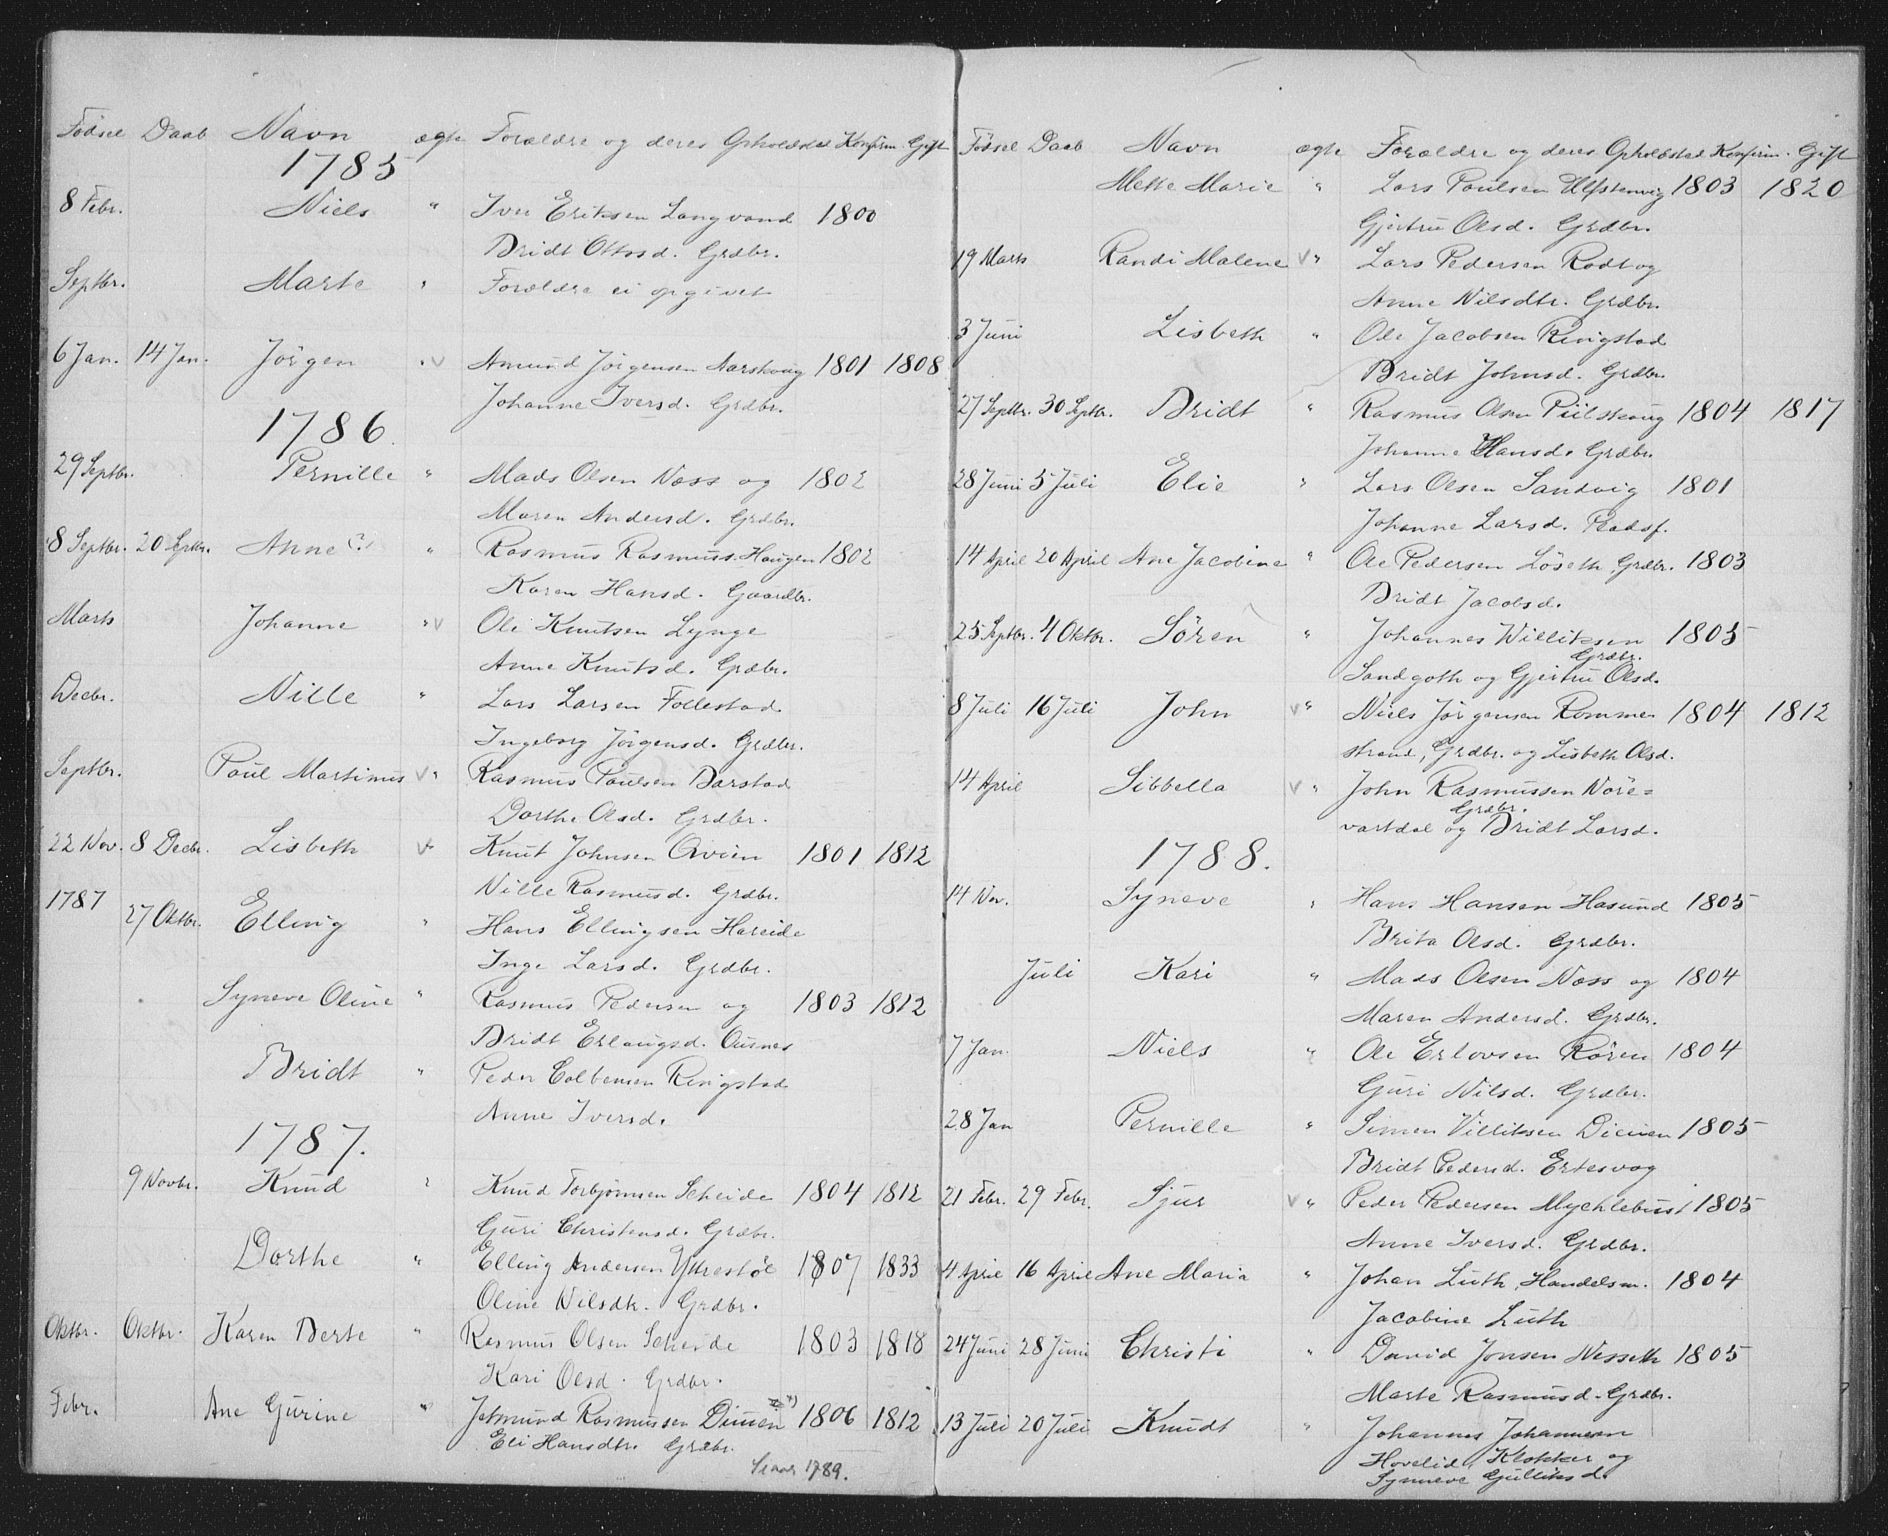 Fødsel Daab Navn ægte Forældre og deres Opholdsted Konfirm. Gift
1785
8 Febr. Niels " Iver Eriksen Langvand 1800
Bridt Ottosd. Grdbr.
Septbr. Marte " Forældre ei opgivet
6 Jan. 14 Jan. Jørgen " v Amund Jørgensen Aarskoug 1801 1808
Johanne Iversd. Grdbr.
1786.
29 Septbr. Pernille " Mads Olsen Næss og 1802
Maren Andersd. Grdbr.
8 Septbr. 20 Septbr. Anne (?) " Rasmus Rasmuss. Haugen 1802
Karen Hansd. Gaardbr.
Marts Johanne " v Ole Knutsen Lynge
Anne Knutsd. Grdbr.
Decbr. Nille " Lars Larsen Follestad
Ingeborg Jørgensd. Grdbr.
Septbr. Poul Martinus v " Rasmus Paulsen Barstad
Dorthe Olsd. Grdbr.
22 Nov. 8 Decbr. Lisbeth v " Knut Johnsen Qvien 1801 1812
Nille Rasmusd. Grdbr.
1787 27 Oktbr. Elling " Hans Ellingsen Hareide
Inge Larsd. Grdbr.
Syneve Oline " Rasmus Pedersen og 1803 1812
Bridt Erlangsd. Ousnes
Bridt " Peder Colbensen Ringstad
Anne Iversd.
1787.
9 Novbr. Knud " Knud Torbjørnsen Scheide 1804 1812
Guri Christensd. Grdbr.
Dorthe " Elling Andersen Yttrestøl 1807 1833
Oline Nilsdtr. Grdbr.
Oktbr. Oktbr. Karen Berte " Rasmus Olsen Scheide 1803 1818
Kari Olsd. Grdbr.
Febr. Ane Gurine " Jetmund Rasmussen Dimen *) 1806 1812
Eli Hansdtr. Grdbr.
1789.
Fødsel Daab Navn ægte Forældre og deres Opholdsted Konfirm. Gift
Mette Marie " Lars Poulsen Ulfstenvig 1803 1820
Gjertrue Olsd. Grdbr.
19 Marts Randi Malene v " Lars Pedersen Rødt og
Anne Nilsdtr. Grdbr.
3 Juni Lisbeth " Ole Jacobsen Ringstad
Bridt Johnsd. Grdbr.
27 Septbr. 30 Septbr. Bridt " Rasmus Olsen Piilskoug 1804 1817
Johanne Hansd. Grdbr.
28 Juni 5 Juli Elie " Lars Olsen Sandvig 1801
Johanne Larsd. Pladsf.
14 April 20 April Ane Jacobine " Ole Pedersen Løseth, Grdbr. 1803
Bridt Jacobsd.
25 Septbr. 4 Oktbr. Søren " Johannes Williksen 1805
Grdbr.
Sandgoth og Gjertrue Olsd.
8 Juli 16 Juli John v " Niels Jørgensen Romme- 1804 1812
strand, Grdbr. og Lisbeth Olsd.
14 April Sibbella v " John Rasmussen Nøre=
Grdbr.
vartdal og Bridt Larsd.
1788.
14 Nov. Syneve " Hans Hansen Hasund 1805
Brita Olsd. Grdbr.
Juli Kari " Mads Olsen Næss og 1804
Maren Andersd. Grdbr.
7 Jan. Niels " Ole Erlovsen Røren 1804
Guri Nilsd. Grdbr.
28 Jan Pernille " Simen Villiksen Dimen 1805
Bridt Pedersd. Ertesvog
21 Febr. 29 Febr. Sjur v " Peder Pedersen Mychlebust 1805
Anne Iversd. Grdbr.
4 April 16 April Ane Maria " Johan Luth, Handelsm. 1804
Jacobine Luth
24 Juni 28 Juni Christi " David Jonsen Nesseth 1805
Marte Rasmusd. Grdbr.
13 Juli 20 Juli Knudt " Johannes Johannesen
Hovelid, Klokker og
Synneve Gulliksd.